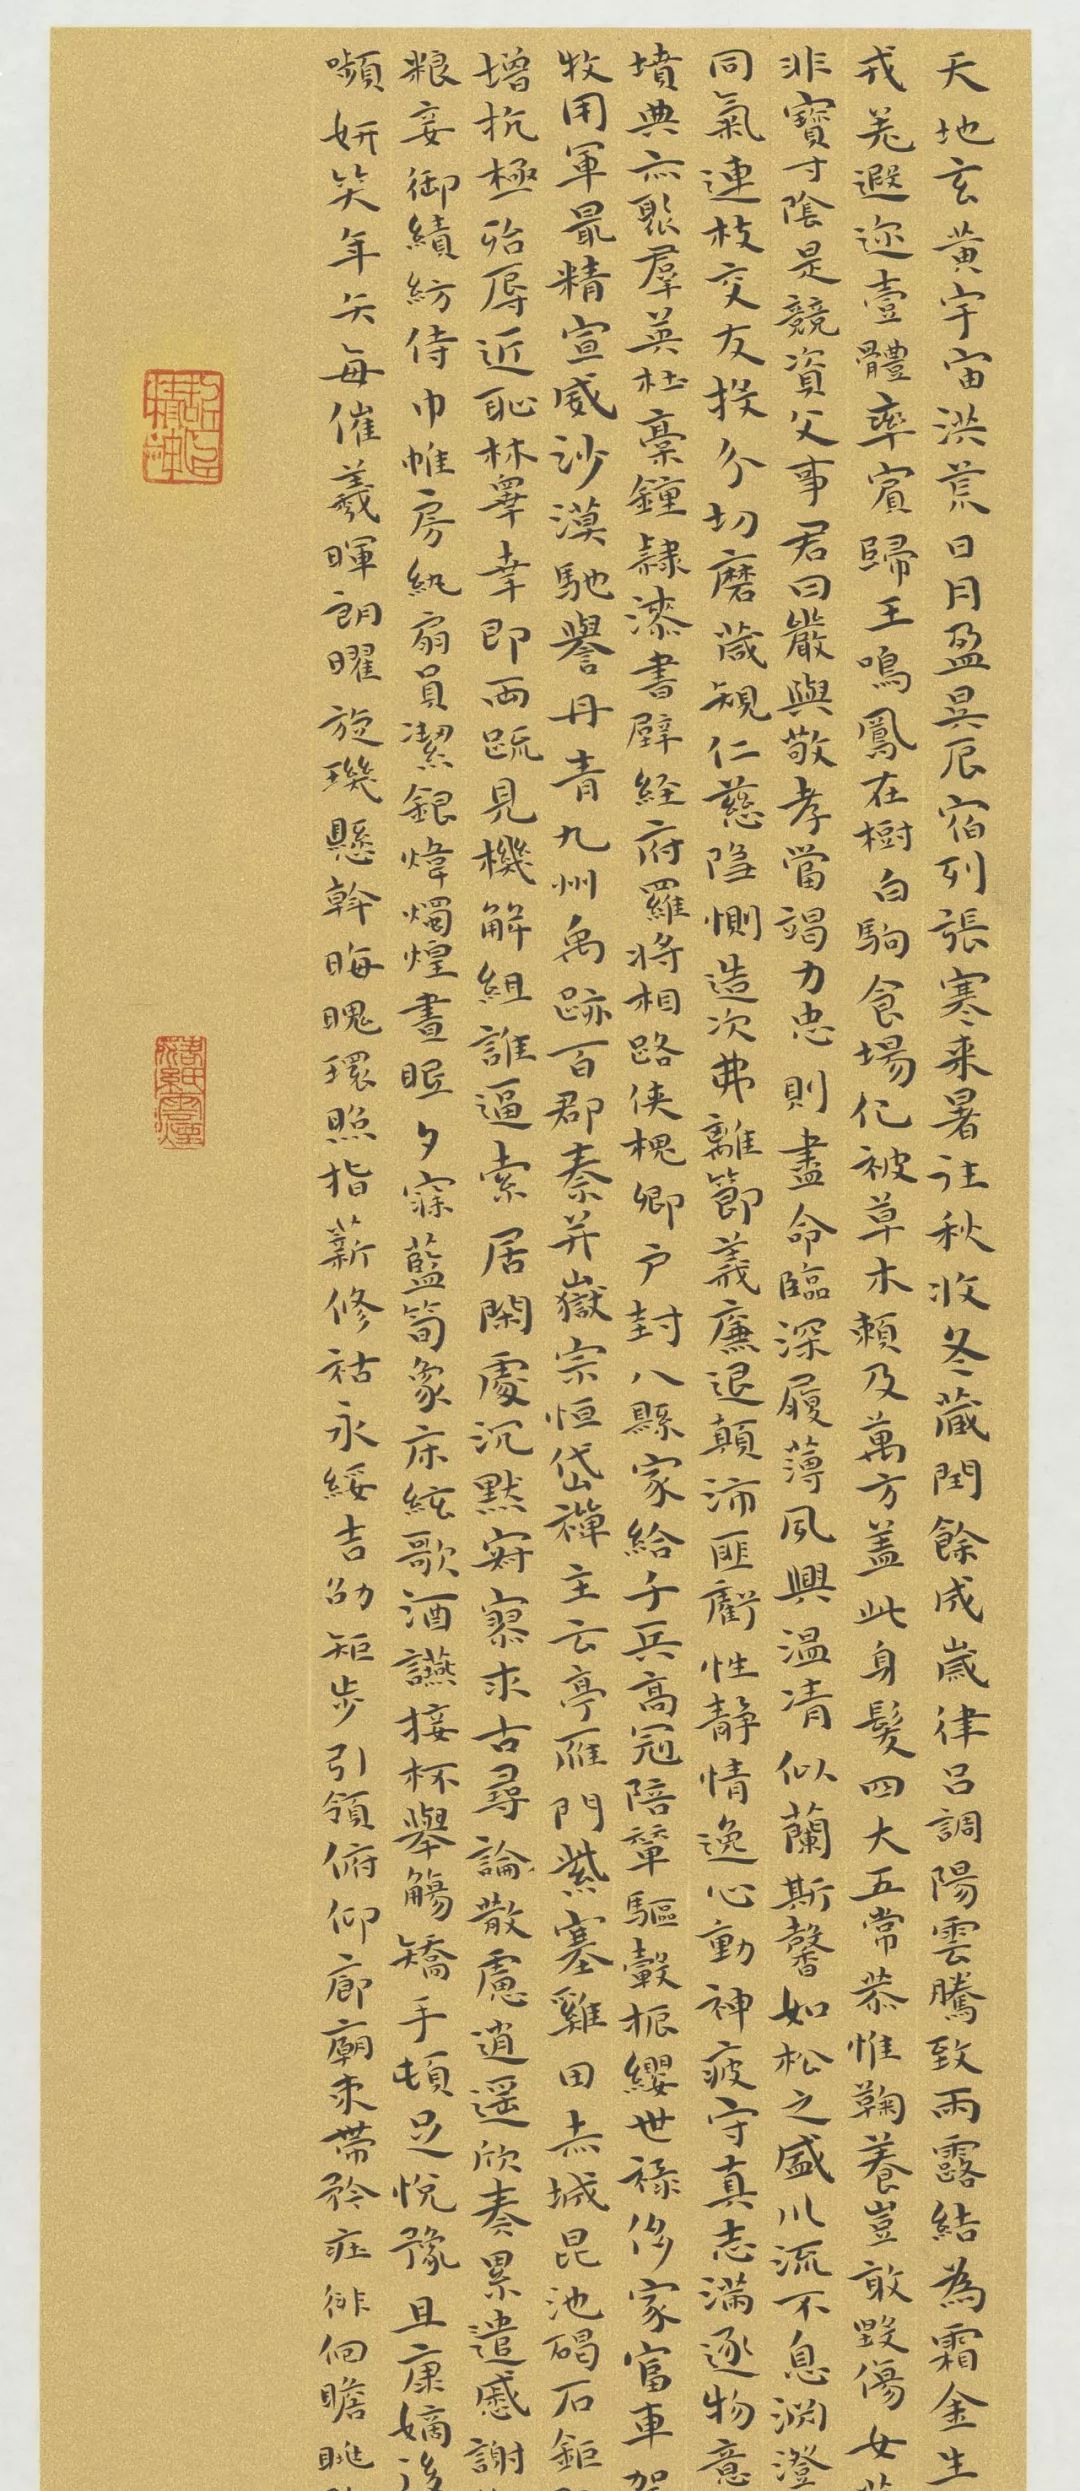 天地玄黃宇宙洪荒日月盈昃辰宿列張寒来暑往秋收冬藏閏餘成歲律吕調陽雲騰致雨露結為霜金生
戎羌遐迩壹體率賓歸王鳴鳳在樹白駒食場化被草木賴及萬方蓋此身髮四大五常恭惟鞠養豈敢毀傷女
非寶寸陰是競資父事君曰嚴與敬孝當竭力忠則盡命臨深履薄夙興温凊似蘭斯馨如松之盛川流不息淵澄
同氣連枝交友投分切磨箴規仁慈隐惻造次弗離節義廉退顛沛匪虧性静情逸心動神疲守真志滿逐物意
墳典亦聚羣英杜稾鍾隸漆書壁経府羅将相路俠槐卿户封八縣家給千兵高冠陪輦驅轂振纓世禄侈家富車駕
牧用軍最精宣威沙漠馳譽丹青九州禹跡百郡秦并嶽宗恒岱禪主云亭雁門紫塞雞田赤城昆池碣石鉅
增抗極殆辱近恥林睾幸即两疏見機解組誰逼索居閑處沉默寂寥求古尋論散慮逍遥欣奏累遣慼謝
粮妾御績紡侍巾帷房紈扇員潔銀煒燭煌晝眠夕寐藍筍象床絃歌酒讌接杯舉觴矯手頓足悦豫且康嫡後
嚬妍笑年矢每催羲暉朗曜旋璣懸斡晦魄環照指薪修祜永綏吉劭矩步引領俯仰廊廟束帶矜庄徘徊瞻眺